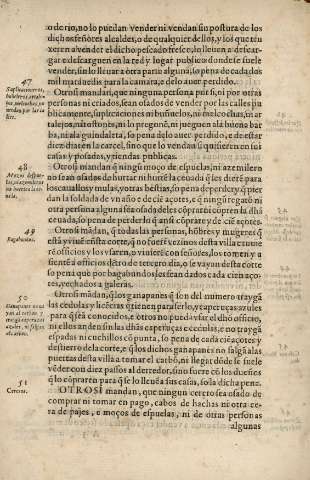 o de rio, no lo puedan vender ni vendan sin postura de los
dichos señores alcaldes, o de qualquier dellos, y los que tru
xeren a vender el dicho pescado fresco, lo lleuen a descar-
gar e descarguen en la red y lugar publico donde se suele
vender, sin lo lleuar a otra parte alguna, so pena de cada dos
mil marauedis para la camara, e de lo auer perdido.
47
Otrosi mandan, que ninguna persona por si, ni por otras
personas ni criados, sean osados de vender por las calles pu
blicamente, suplicaciones ni buñuelos, ni melcochas, ni
ni lo pregonẽ, ni jueguen a la buena bar
ba, ni a la gaindaleta, so pena de lo auer perdido, e de estar
diez dias en la carcel, sino que lo vendan si quisieren en sus
casas y posadas, y tiendas publicas.
48
Otrosi mandan que ningũ moço de espuelas, ni azemilero
no sean osados de hurtar ni hurtẽ la ceuada que les dierẽ para
los cauallos y mulas, y otras bestias, so pena de perder, y que pier
dan la soldada de vn año e de ciẽ açotes, e que ningũ regatõ ni
otra persona alguna sea osado de les cõprar ni cõpren la dha
ceuada, so pena de perder lo que ansi cõprarẽ y de ciẽ açotes.
49
Vagabundos.
Otrosi mãdan, que todas las personas, hõbres y mugeres que
está y viuẽ en esta corte, que no fuerẽ vezinos desta villa e tuuie
rẽ officios y los vsaren, o viuierẽ con señores, los tomen y a
sientẽ a officios dẽtro de tercero dia, o se vayan desta corte
so pena que por bagabundos, les sean dados cada cien aço-
tes, y echados a galeras.
50
Otrosi mãdan, que los ganapanes que son del numero trayga
las cedulas y licẽcias que tienen para serlo, y caperuças azules
para que seã conocidos, e otros no puedã vsar el dho officio,
ni ellos anden sin las dhas caperuças e cedulas, e no traygã
espadas ni cuchillos cõ punta, so pena de cada ciẽ açotes y
destierro de la corte, e que los dichos ganapanes no salgã a las
puertas desta villa a tomar el carbõ, ni llegar dõde se suele
vẽder con diez passos al derredor, sino fuere cõ los dueños
que lo cõpraren para que se lo lleuẽ a sus casas, so la dicha pena.
51
Cereros.
OTROSI mandan, que ningun cerero sea osado de
comprar ni tomar en pago, cabos de hachas ni otra ce-
ra de pajes, e moços de espuelas, ni de otras personas
algunas